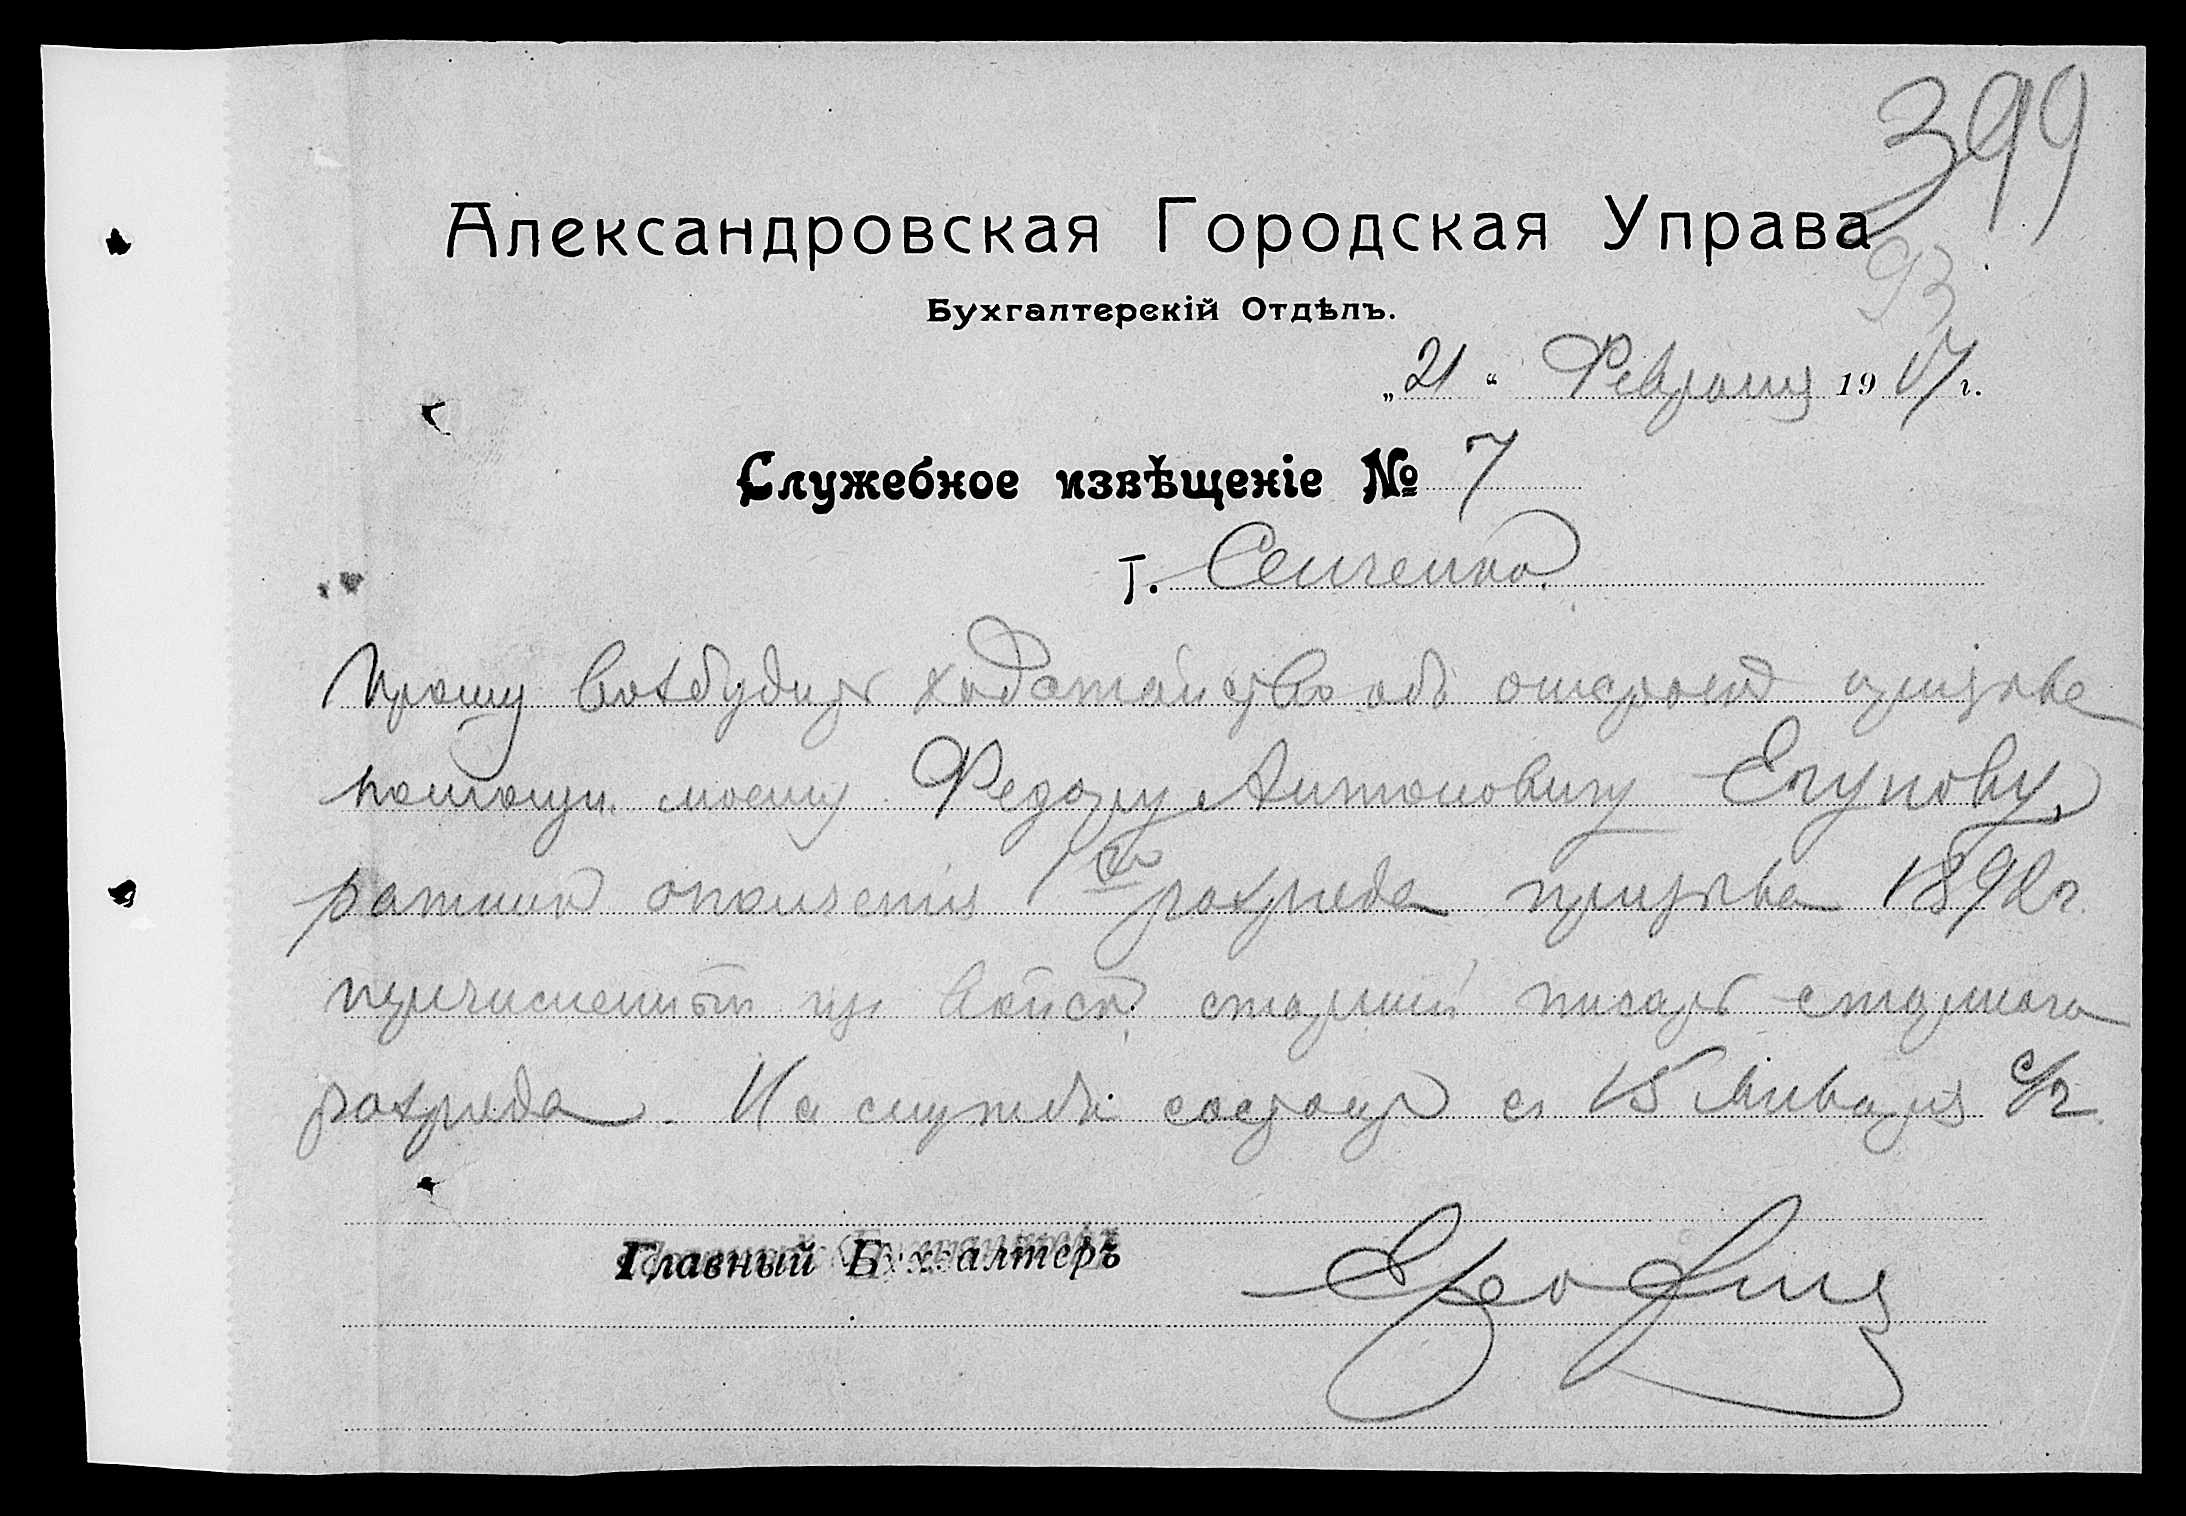 399
93
Александровская Городская Управа
Бухгалтерскій Отдѣлъ.
„21“ Февраля 1917 г.
Служебное извѣщеніе № 7
Г. Сенченко
Прошу возбудить ходатайство объ отсрочкѣ призыва
помощн. моему Федору Антоновичу Егупову,
ратник ополченія 1го разряда призыва 1892 г.
перечисленный из войск старший писарь старшаго
разряда. На службѣ состоит съ 15 Января с/г.
Главный Бухгалтеръ